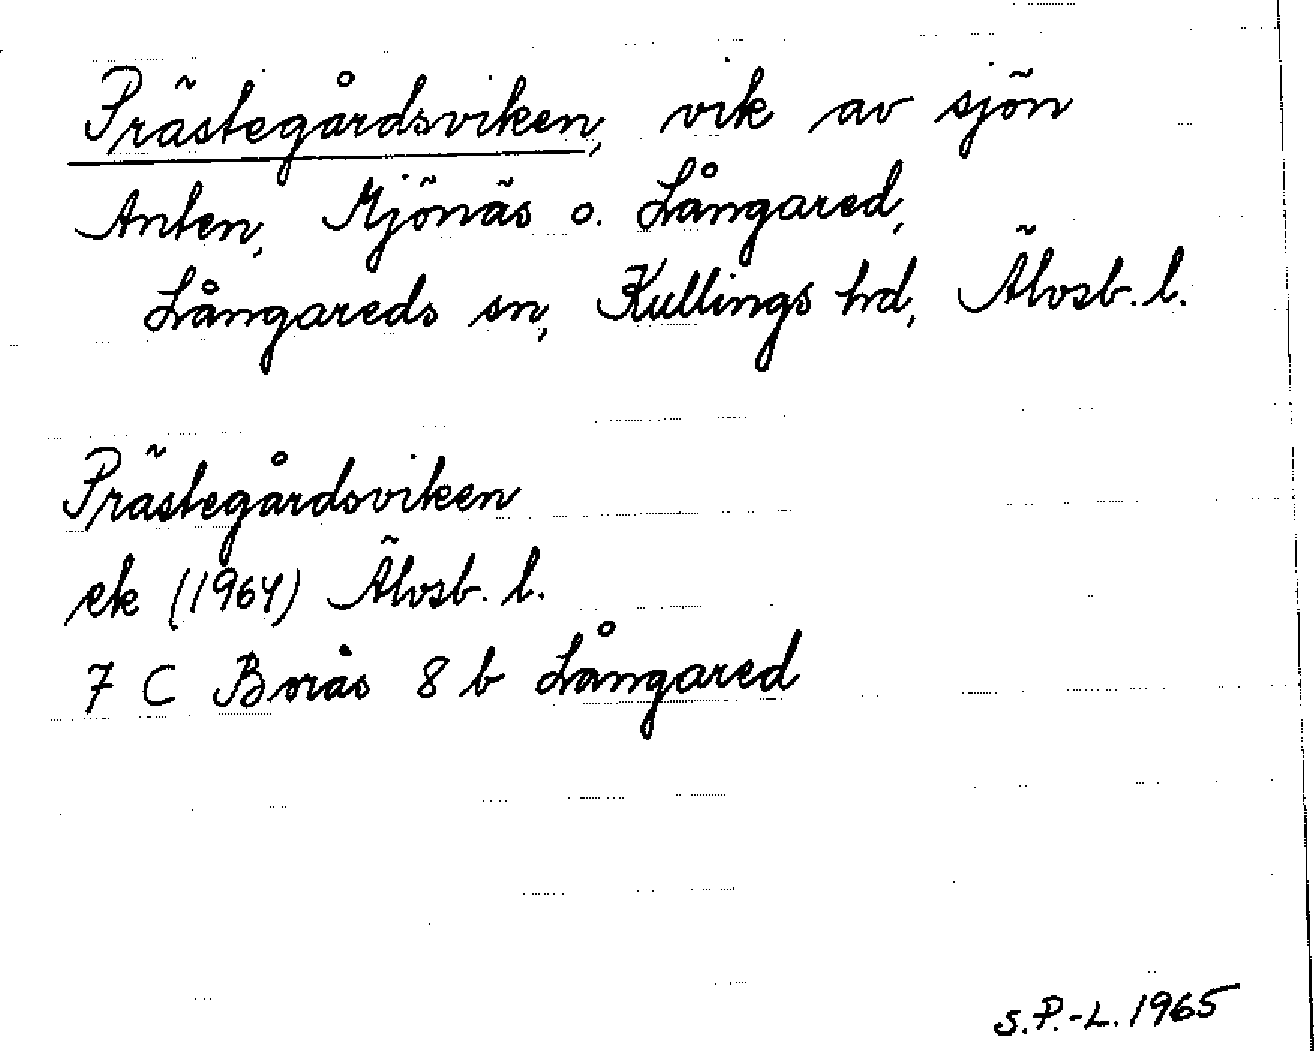 Prästegårdsviken, vik av sjön
Anten, Mjönäs o. Långared,
Långareds sn, Kullings hd, Älvsb. l.
Prästegårdsviken
ek (1964) Älvsb. l.
7 C Borås 8 b Långared
S.P.-L. 1965